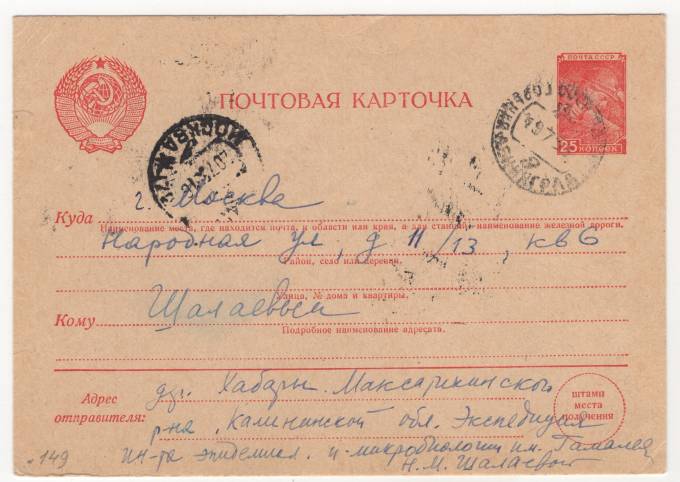 ПОЧТА СССР
25 КОПЕЕК
ПОЧТОВАЯ КАРТОЧКА
МОСКВА
г. Москве
Куда
Наименование места, где находится почта, и области или края, а для станций наименование железной дороги.
Народная ул, д 11/13, кв 6
Район, село или деревня.
Улица, № дома и квартиры.
Шалаевым
Кому
Подробное наименование адресата.
Адрес
отправителя:
дер. Хабары. Максатихинского
р-на, Калининской обл. Экспедиция
ин-та эпидемиол. и микробиологии им. Гамалея
Н. М. Шалаевой
штамп
места
получения
149